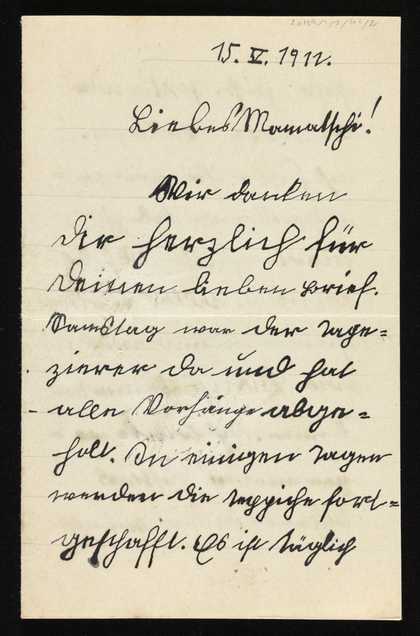 15. V. 1911.
Liebes Mamatschi!
Wir danken
dir herzlich für
deinen lieben Brief.
Samstag war der Tape=
zierer da und hat
alle Vorhänge abge=
holt. In einigen Tagen
werden die Teppiche fort=
geschafft. Es ist täglich